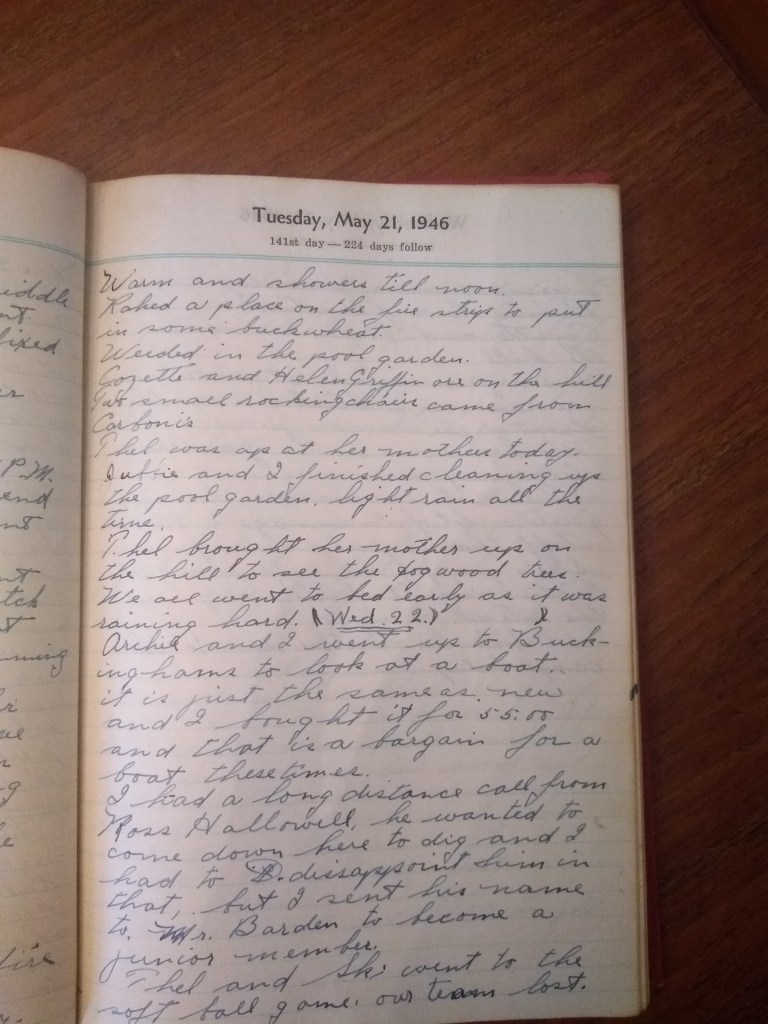 iddle
nt.
fixed
er
P.M.
end
nt
nt
tch
t
mming
r
ue
n
g
e
fire
y.
Tuesday, May 21, 1946
141st day — 224 days follow
Warm and showers till noon.
Raked a place on the fire strip to put
in some buckwheat.
Weeded in the pool garden.
Cozette and Helen Griffin are on the hill
Two small rockingchairs came from
Carbonis
Thel was up at her mothers today.
and I finished cleaning up
the pool garden. light rain all the
time.
Thel brought her mother up on
the hill to see the dogwood trees.
We all went to bed early as it was
raining hard. (Wed. 22.)
Archie and I went up to Buck-
inghams to look at a boat.
it is just the same as new
and I bought it for 55.00
and that is a bargain for a
boat these times.
I had a long distance call from
Ross Hallowell, he wanted to
come down here to dig and I
had to D. dissappoint him in
that, but I sent his name
to. Mr. Barden to become a
junior member.
Thel and Ski went to the
soft ball game. our team lost.